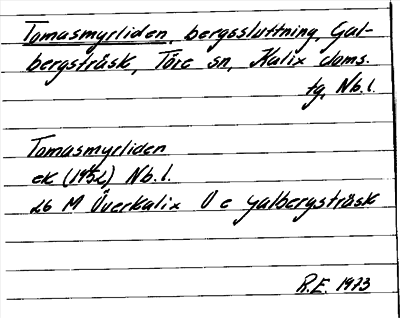 Tomasmyrliden, bergssluttning, Gal-
bergsträsk, Töre sn, Kalix doms.
tg, Nb.l.
Tomasmyrliden
ek (1952) Nb.l.
26 M Överkalix V e Galbergsträsk
R.E. 1973